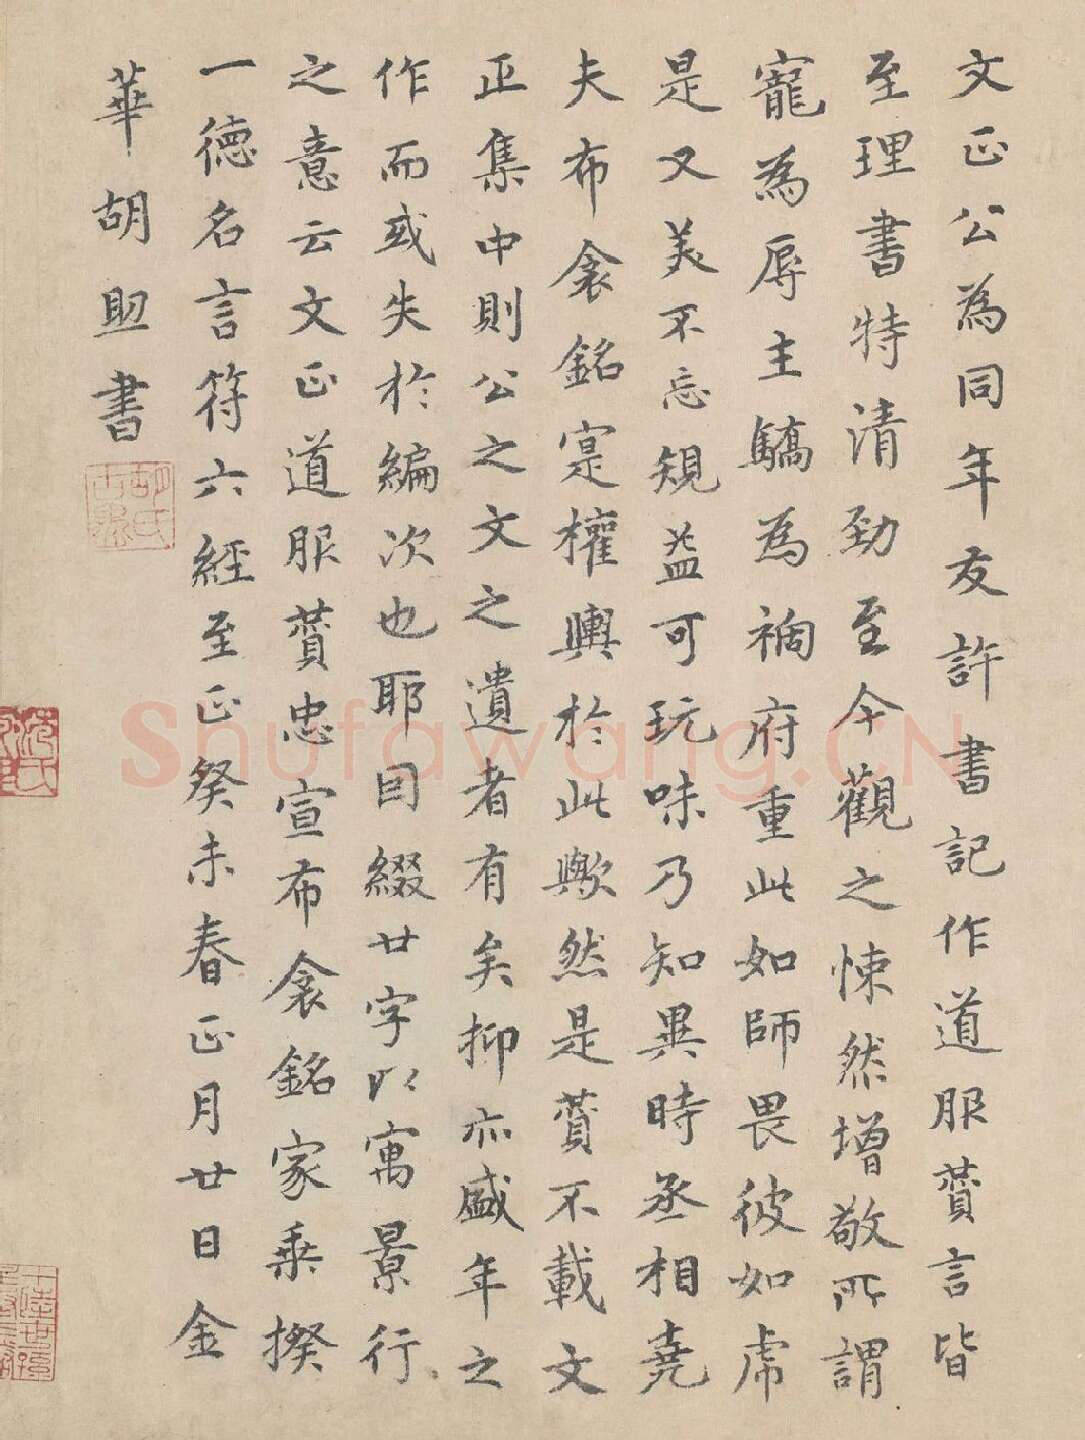 文正公為同年友許書記作道服賛言皆
至理書特清勁至今觀之悚然增敬所謂
寵為辱主驕為禍府重此如師畏彼如虎
是又美不忘規益可玩味乃知異時丞相堯
夫布衾銘寔權輿於此歟然是賛不載文
正集中則公之文之遺者有矣抑亦盛年之
作而或失於編次也耶因綴廿字以寓景行
之意云文正道服賛忠宣布衾銘家乘揆
一德名言符六經至正癸未春正月廿日金
華胡助書
胡氏古愚
Shufawang.CN